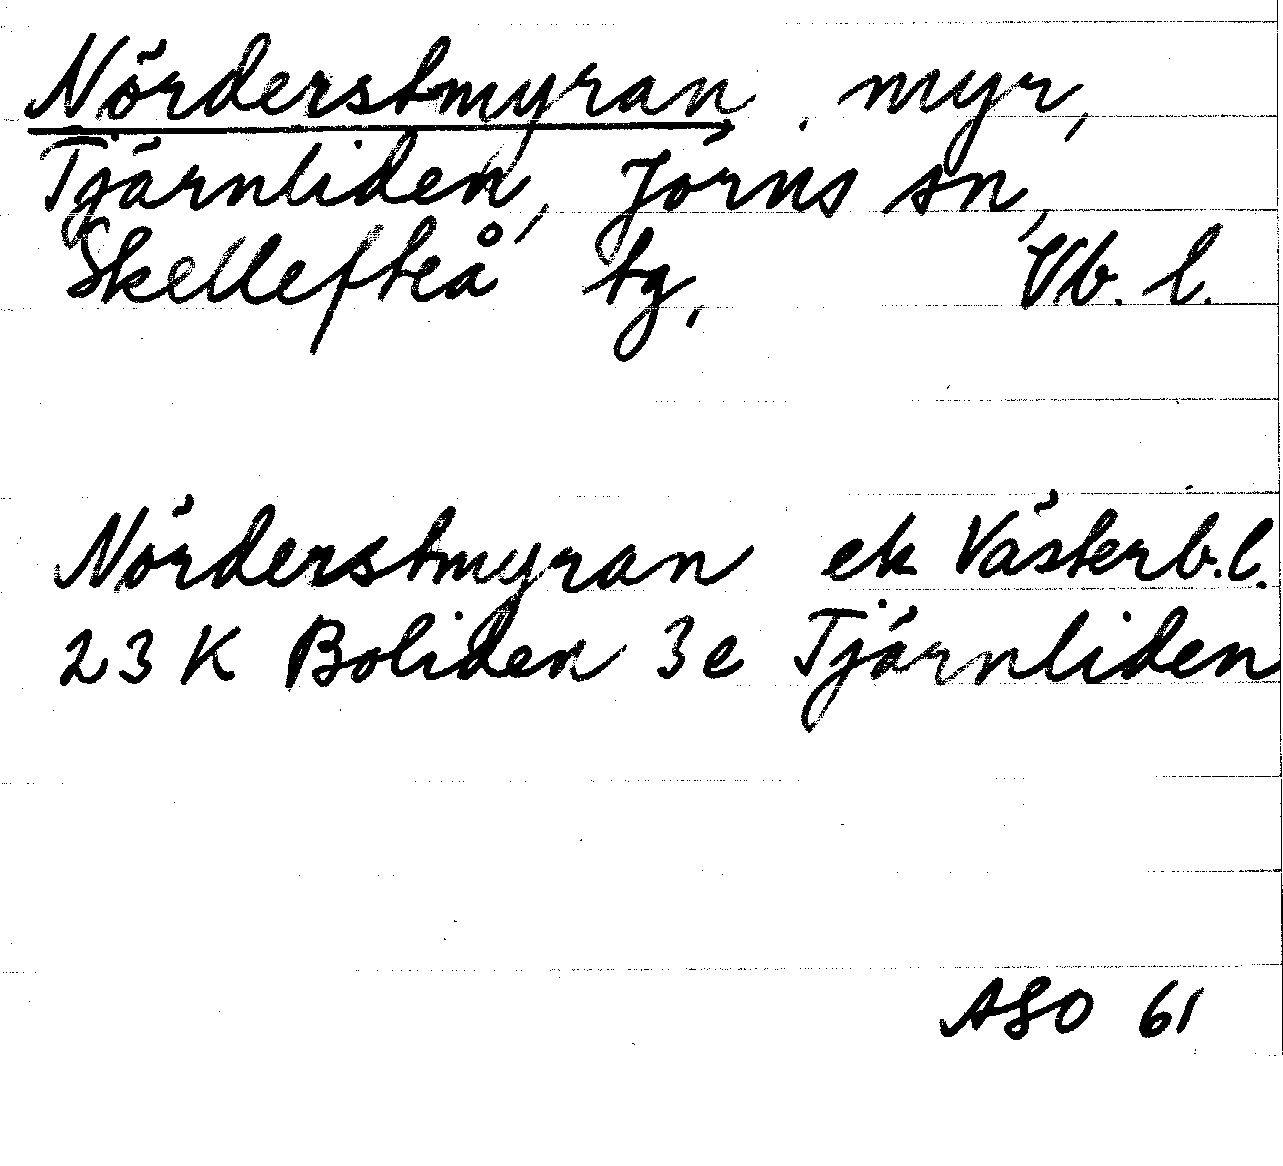 Nörderstmyran, myr,
Tjärnliden, Jörns sn,
Skellefteå tg, Vb. l.
Nörderstmyran ek Västerb.l.
23 K Boliden 3e Tjärnliden
ASO 61